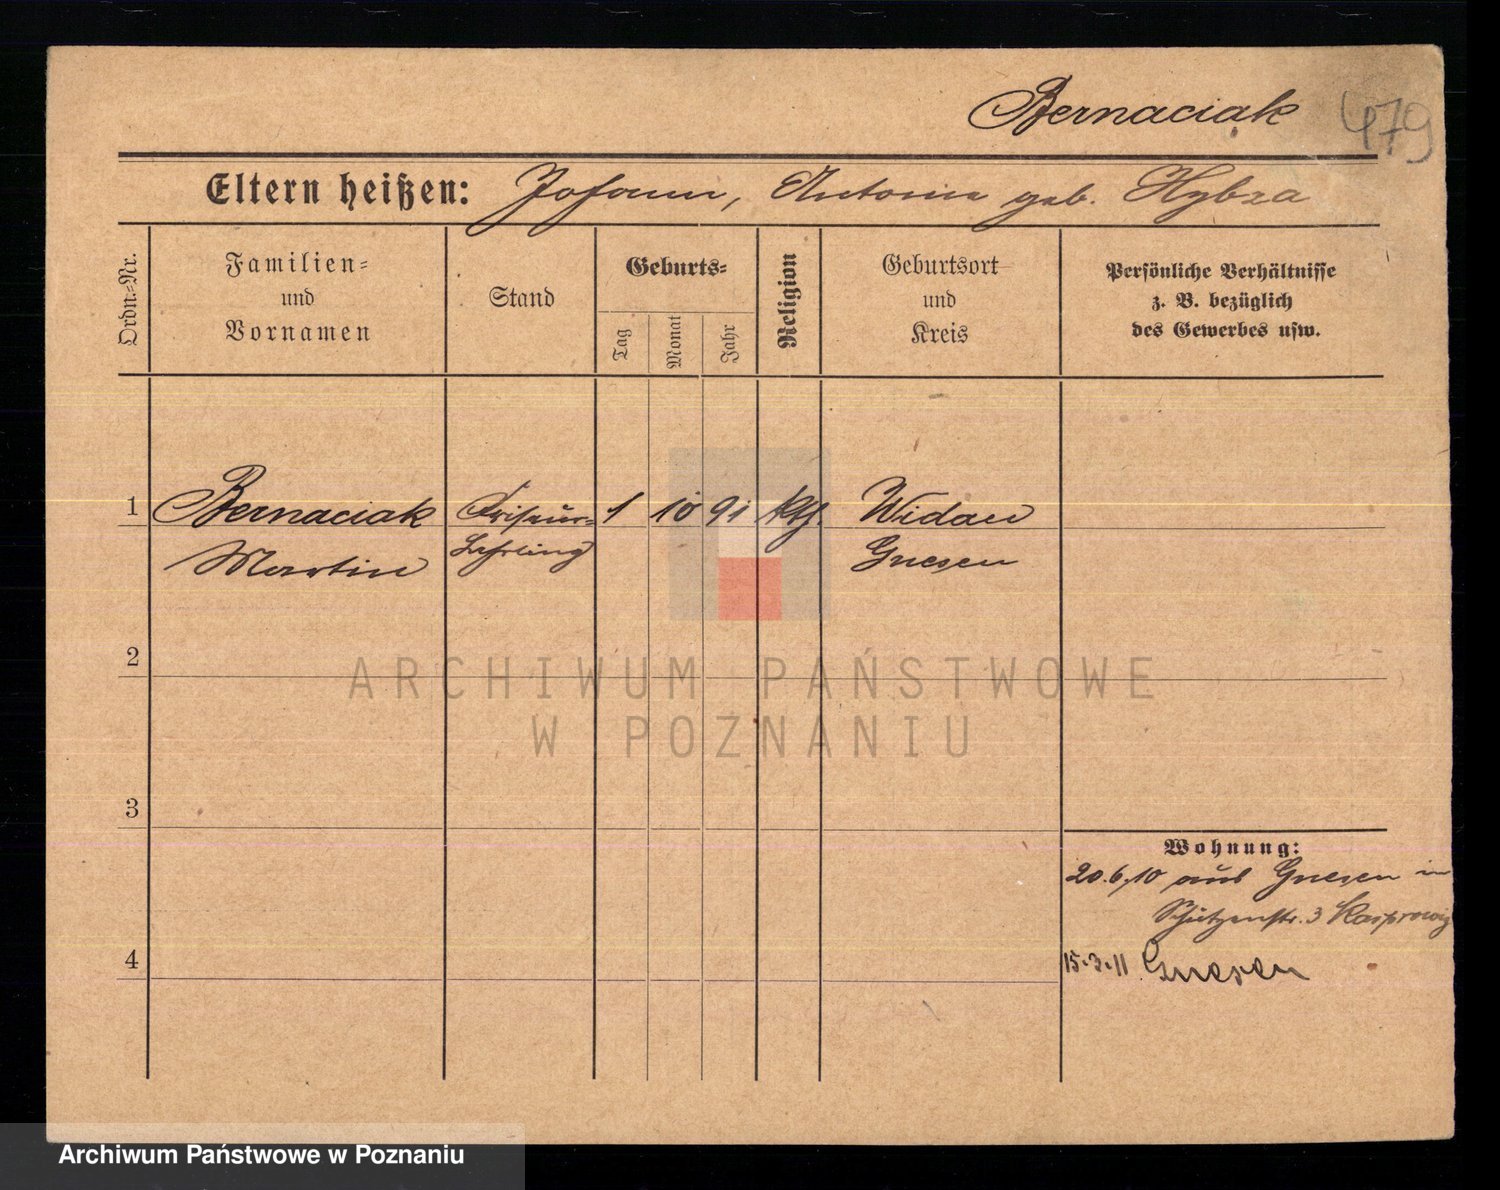 Bernaciak
479
Eltern heißen: Johann, Antonie geb. Hybza
Ordn.-Nr.
Familien-
und
Vornamen
Stand
Geburts-
Tag
Monat
Jahr
Religion
Geburtsort
und
Kreis
Persönliche Verhältnisse
z. B. bezüglich
des Gewerbes usw.
1 Bernaciak Friseur- 1 10 91 kth. Widau
Martin Lehrling Gnesen
2
3
4
Wohnung:
20.6.10 aus Gnesen in
Schützenstr. 3
15.3.11 Gnesen
ARCHIWUM PAŃSTWOWE
W POZNANIU
Archiwum Państwowe w Poznaniu